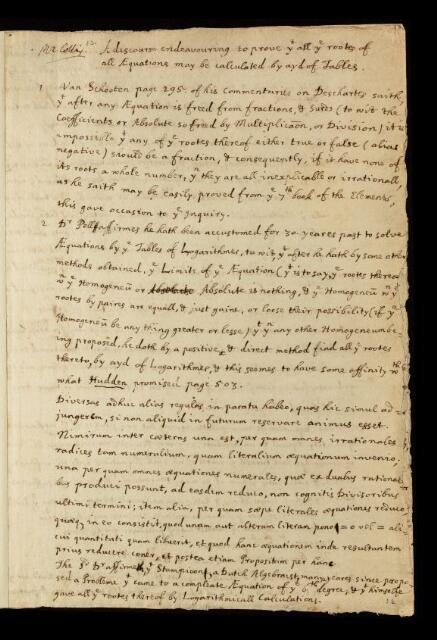 Mr Collins. A discourse endeavouring to prove yt all ye roots of
all Æquations may be calculated by ayd of Tables.
1 Van Schooten page 295 of his Commentaries on Deschartes saith
yt after any Æquation is freed from fractions, & Surds (to wit the
Coefficients or Absolute so freed by Multiplicacon, or Division) it is
impossible yt any of ye roots thereof either true or false (alias
negative) should be a fraction, & consequently, if it have none of
its roots a whole number, yn they are all inexplicable or irrationall,
as he saith may be easily proved from ye 7th book of the Elements,
this gave occasion to ye Inquiry.
2 Dr Pell affirmes he hath been accustomed for 30 yeares past to solve
Æquations by ye Tables of Logarithmes, to wit, yt after he hath by some other
methods obtained, ye Limits of ye Æquation (yt is to say, ye roots thereof
wn ye Homogeneū or Absolute is nothing, & ye Homogeneū wn ye
rootes by paires are equall, & just gaine, or loose their possibility (if ye
Homogeneū be any thing greater or lesse) yt yn any other Homogeneū be
ing proposed, he doth by a positive & direct method find all ye roots
thereto, by ayd of Logarithmes, & this seemes to have some affinity wth
what Hudden promiseth page 503.
Diversas adhuc alias regulas in paratu habeo, quas hic simul ad
jungerem, si non aliquid in futurum reservare animus esset.
Nimirum inter cæteras una est, per quam omnes, irrationales
radices tam numeralium, quam literalium æquationum invenio.
una per quam omnes æquationes numerales, quæ ex duabus rationali
bus produci possunt, ad eosdem reduco, non cognitis Divisoribus
ultimi termini; item alia, per quam sæpe literales æquationes reduco
quæq in eo consistit, quod unam aut alteram literam pono = 0 vel = ali
cui quantitati quam libuerit, et quod hanc æquationem inde resultantem
prius reducere coner, et postea etiam Propositam per hanc
The sd Dr affirmeth yt Stampioen, a Dutch Algebraist, many yeares since propo
sed a Probleme yt came to a compleate Æquation of ye 6th degree, & yt himselfe
gave all ye roots thereof by Logarithmicall Calculations.